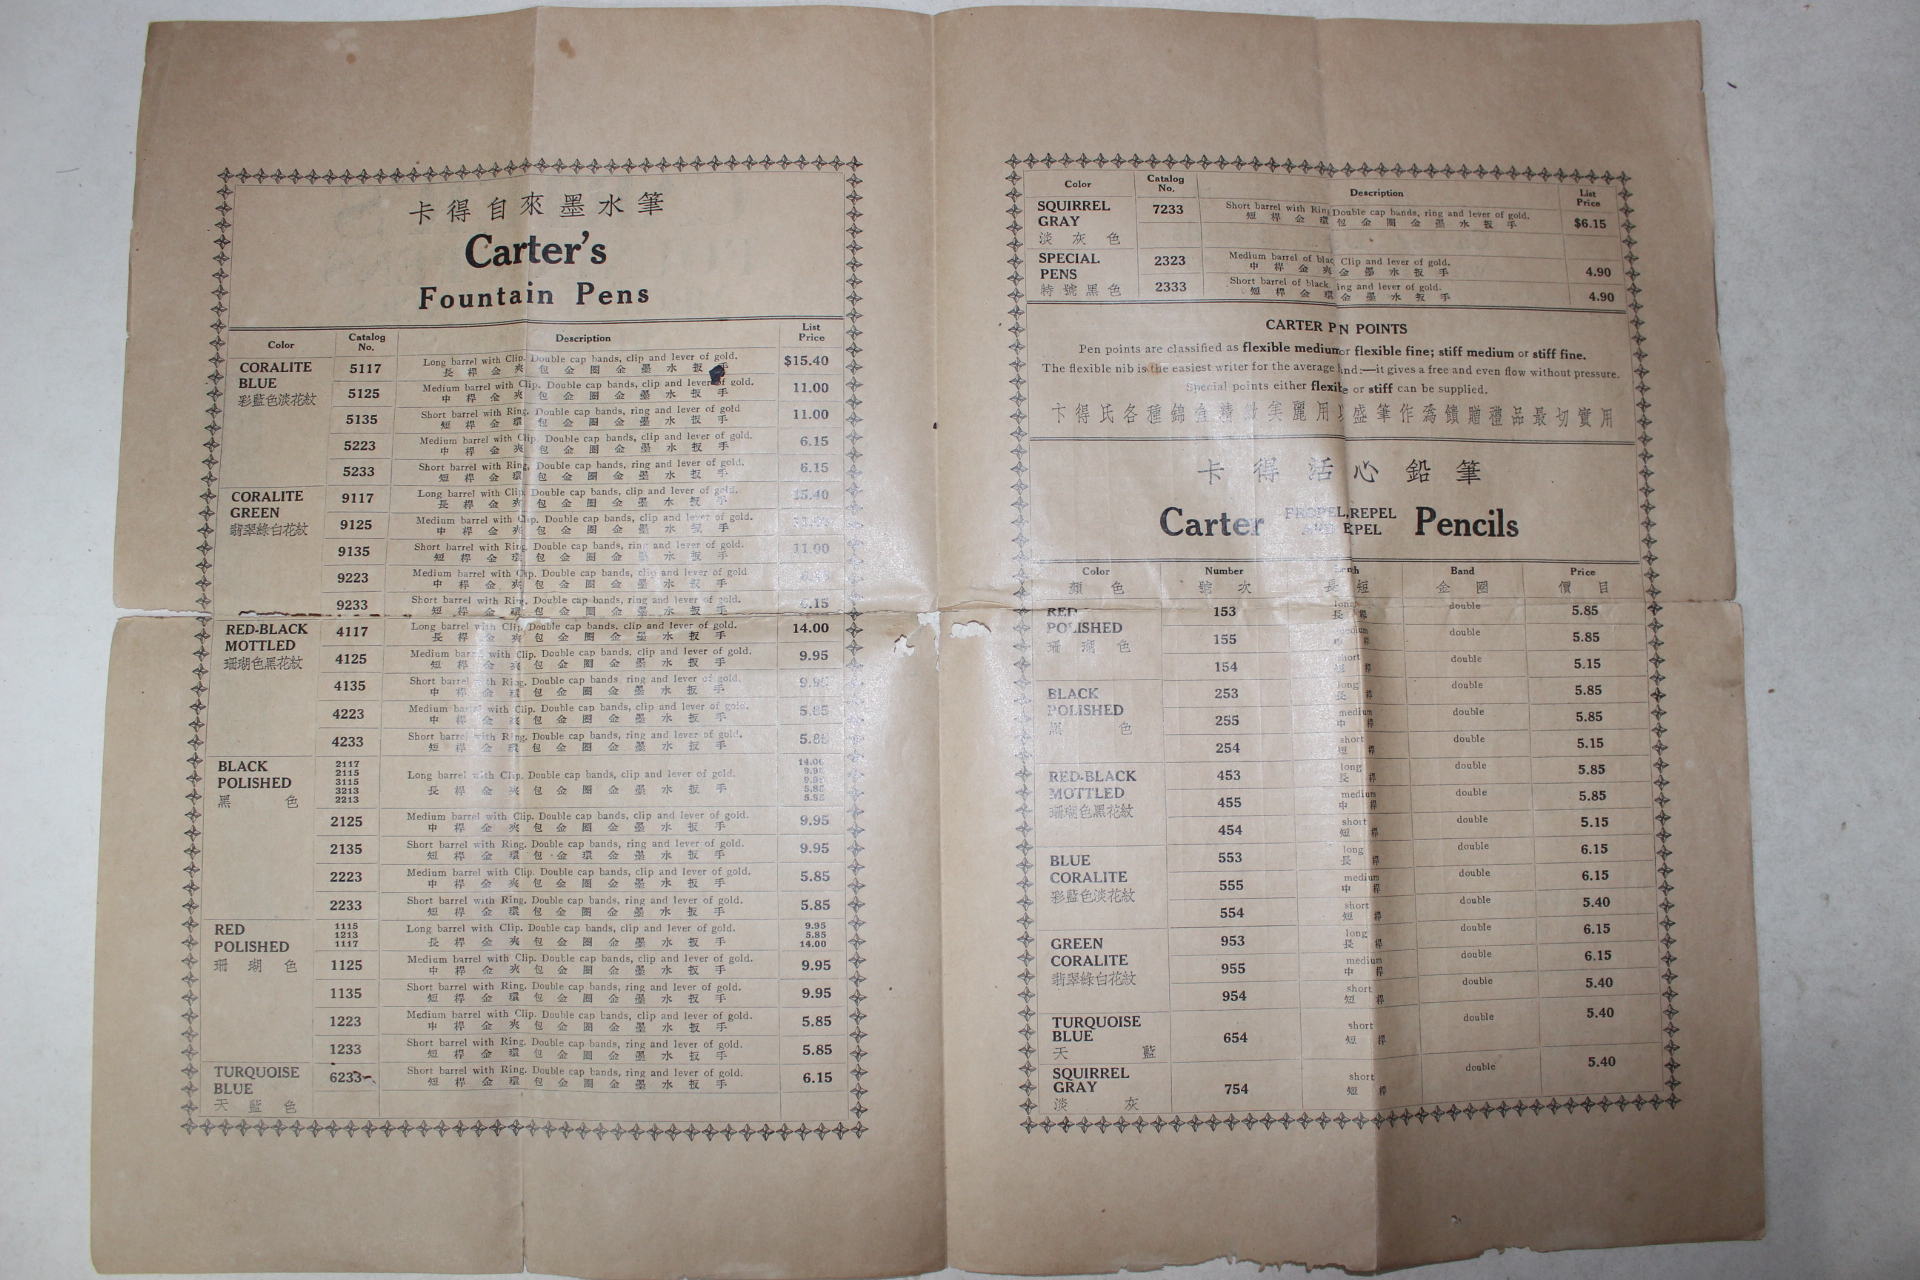 卡得自來墨水筆
Carter's
Fountain Pens
Color Catalog No. Description List Price
CORALITE BLUE 彩藍色淡花紋
5117 Long barrel with Clip. Double cap bands, clip and lever of gold. $15.40
長桿金夾包金圈金墨水扳手
5125 Medium barrel with Clip. Double cap bands, clip and lever of gold. 11.00
中桿金夾包金圈金墨水扳手
5135 Short barrel with Ring. Double cap bands, ring and lever of gold 11.00
短桿金環包金圈金墨水扳手
5223 Medium barrel with Clip. Double cap bands, clip and lever of gold. 6.15
中桿金夾包金圈金墨水扳手
5233 Short barrel with Ring, Double cap bands, ring and lever of gold. 6.15
短桿金環包金圈金墨水扳手
CORALITE GREEN 翡翠綠白花紋
9117 Long barrel with Clip. Double cap bands, clip and lever of gold. 15.40
長桿金夾包金圈金墨水扳手
9125 Medium barrel with Clip. Double cap bands, clip and lever of gold.
中桿金夾包金圈金墨水扳手
9135 Short barrel with Ring. Double cap bands, ring and lever of gold. 11.00
短桿金環包金圈金墨水扳手
9223 Medium barrel with Clip. Double cap bands, clip and lever of gold
中桿金夾包金圈金墨水扳手
9233 Short barrel with Ring. Double cap bands, ring and lever of gold. 6.15
短桿金環包金圈金墨水扳手
RED-BLACK MOTTLED 珊瑚色黑花紋
4117 Long barrel with Clip. Double cap bands. clip and lever of gold. 14.00
長桿金夾包金圈金墨水扳手
4125 Medium barrel with Clip. Double cap bands, clip and lever of gold. 9.95
短桿金夾包金圈金墨水扳手
4135 Short barrel with Ring. Double cap bands ring and lever of gold. 9.95
中桿金環包金圈金墨水扳手
4223 Medium barrel with Clip. Double cap bands, clip and lever of gold. 5.85
中桿金夾包金圈金墨水扳手
4233 Short barrel with Ring. Double cap bands, ring and lever of gold. 5.85
短桿金環包金圈金墨水扳手
BLACK POLISHED 黑色
2117 14.00
2115 9.95
3115 9.95
3213 5.85
2213 5.85
Long barrel with Clip. Double cap bands, clip and lever of gold.
長桿金夾包金圈金墨水扳手
2125 Medium barrel with Clip. Double cap bands, clip and lever of gold. 9.95
中桿金夾包金圈金墨水扳手
2135 Short barrel with Ring. Double cap bands, ring and lever of gold. 9.95
短桿金環包金環金墨水扳手
2223 Medium barrel with Clip. Double cap bands, clip and lever of gold. 5.85
中桿金夾包金圈金墨水扳手
2233 Short barrel with Ring. Double cap bands, ring and lever of gold. 5.85
短桿金環包金圈金墨水扳手
RED POLISHED 珊瑚色
1115 9.95
1213 5.85
1117 14.00
Long barrel with Clip. Double cap bands, clip and lever of gold.
長桿金夾包金圈金墨水扳手
1125 Medium barrel with Clip. Double cap bands, clip and lever of gold. 9.95
中桿金夾包金圈金墨水扳手
1135 Short barrel with Ring. Double cap bands, ring and lever of gold. 9.95
短桿金環包金圈金墨水扳手
1223 Medium barrel with Clip. Double cap bands, clip and lever of gold. 5.85
中桿金夾包金圈金墨水扳手
1233 Short barrel with Ring. Double cap bands, ring and lever of gold. 5.85
短桿金環包金圈金墨水扳手
TURQUOISE BLUE 天藍色
6233 Short barrel with Ring. Double cap bands, ring and lever of gold. 6.15
短桿金環包金圈金墨水扳手
Color Catalog No. Description List Price
SQUIRREL GRAY 淡灰色
7233 Short barrel with Ring Double cap bands, ring and lever of gold. $6.15
短桿金環包金圈金墨水扳手
SPECIAL PENS 特號黑色
2323 Medium barrel of blac Clip and lever of gold. 4.90
中桿金夾金墨水扳手
2333 Short barrel of black. ing and lever of gold. 4.90
短桿金環金墨水扳手
CARTER P N POINTS
Pen points are classified as flexible medium or flexible fine; stiff medium or stiff fine.
The flexible nib is the easiest writer for the average hand:—it gives a free and even flow without pressure.
Special points either flexible or stiff can be supplied.
卡得氏各種錦盒精緻美麗用以盛筆作為饋贈禮品最切實用
卡得活心鉛筆
Carter PROPEL,REPEL AND EPEL Pencils
Color Number Band Price
顏色 號次 長短 金圈 價目
RED POLISHED 珊瑚色
153 long 長桿 double 5.85
155 medium 中桿 double 5.85
154 short 短桿 double 5.15
BLACK POLISHED 黑色
253 long 長桿 double 5.85
255 medium 中桿 double 5.85
254 short 短桿 double 5.15
RED-BLACK MOTTLED 珊瑚色黑花紋
453 long 長桿 double 5.85
455 medium 中桿 double 5.85
454 short 短桿 double 5.15
BLUE CORALITE 彩藍色淡花紋
553 long 長桿 double 6.15
555 medium 中桿 double 6.15
554 short 短桿 double 5.40
GREEN CORALITE 翡翠綠白花紋
953 long 長桿 double 6.15
955 medium 中桿 double 6.15
954 short 短桿 double 5.40
TURQUOISE BLUE 天藍
654 short 短桿 double 5.40
SQUIRREL GRAY 淡灰
754 short 短桿 double 5.40